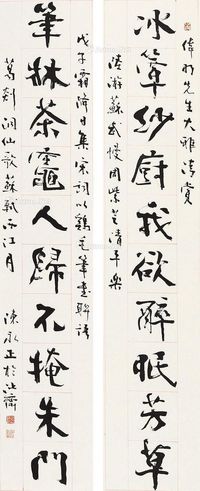 先生大雅清賞
冰簟紗廚我欲醉眠芳草
陸游蘇武慢周紫芝清平樂
戊子霜降日集宋詞以鷄毛筆書聯語
筆牀茶竈人歸不掩朱門
葛剡洞仙歌蘇軾西江月 陳永正於沚齋